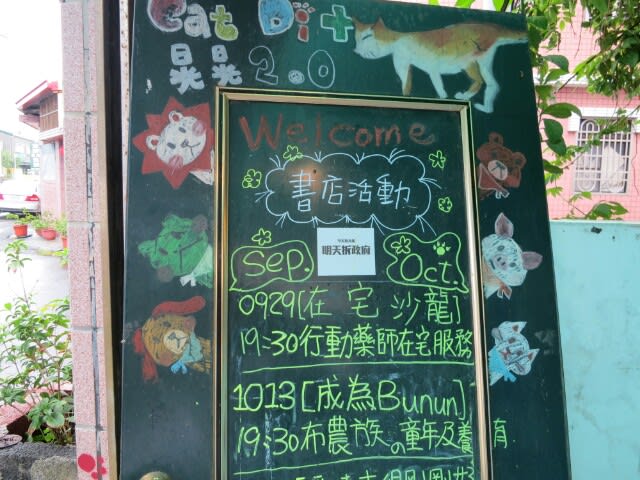 Cat Bi+
晃晃2.0
Welcome
書店活動
今天拆大埔
明天拆政府
Sep.
Oct.
0929[在宅沙龍]
19:30行動藥師在宅服務
1013[成為Bunun]
19:30布農族の童年及養育